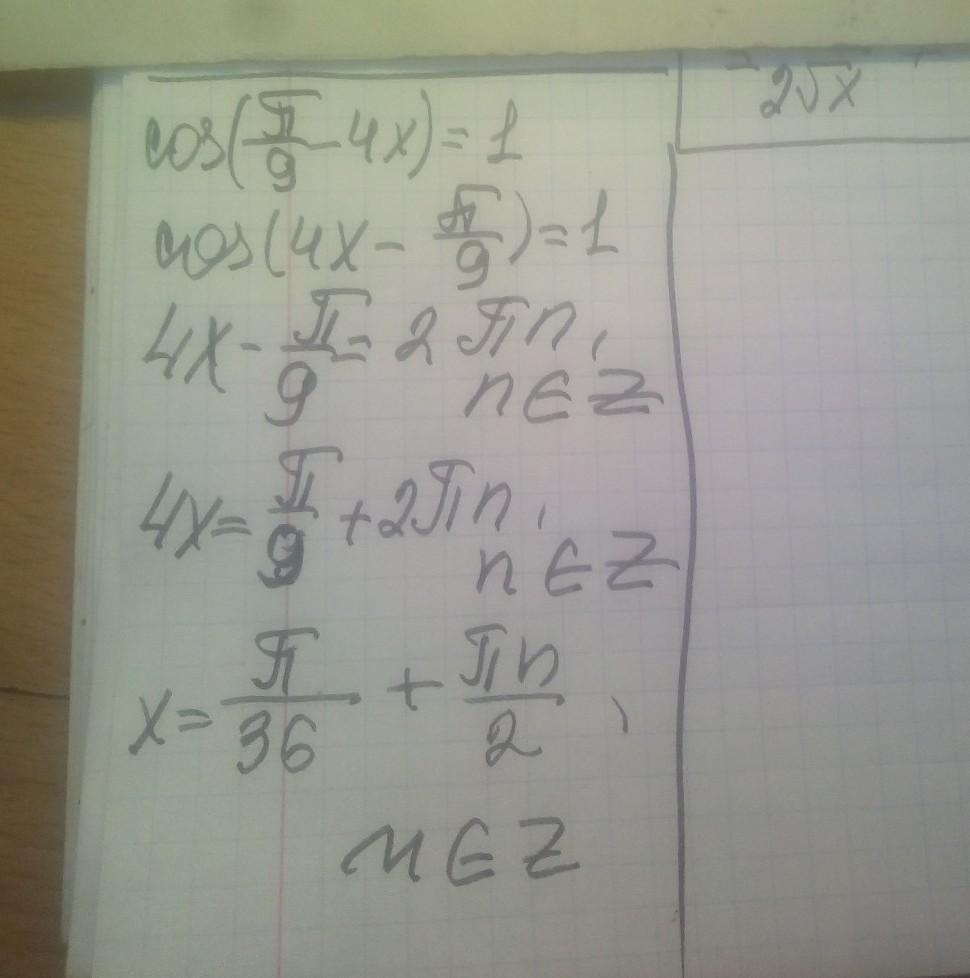 cos(π/9 - 4x) = 1
cos(4x - π/9) = 1
4x - π/9 = 2πn,
n ∈ Z
4x = π/9 + 2πn,
n ∈ Z
x = π/36 + πn/2,
n ∈ Z
2√x